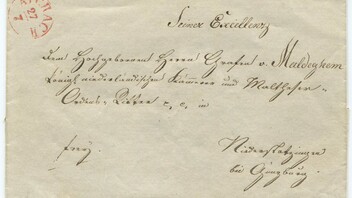 Seiner Excellenz
Dem Hochgebornen Herrn Grafen v. Maldeghem
Königl. niederländischen Kämmerer und Maltheser-
Ordens-Ritter c, c, in
frey.
Niederstotzingen
bei Günzburg.